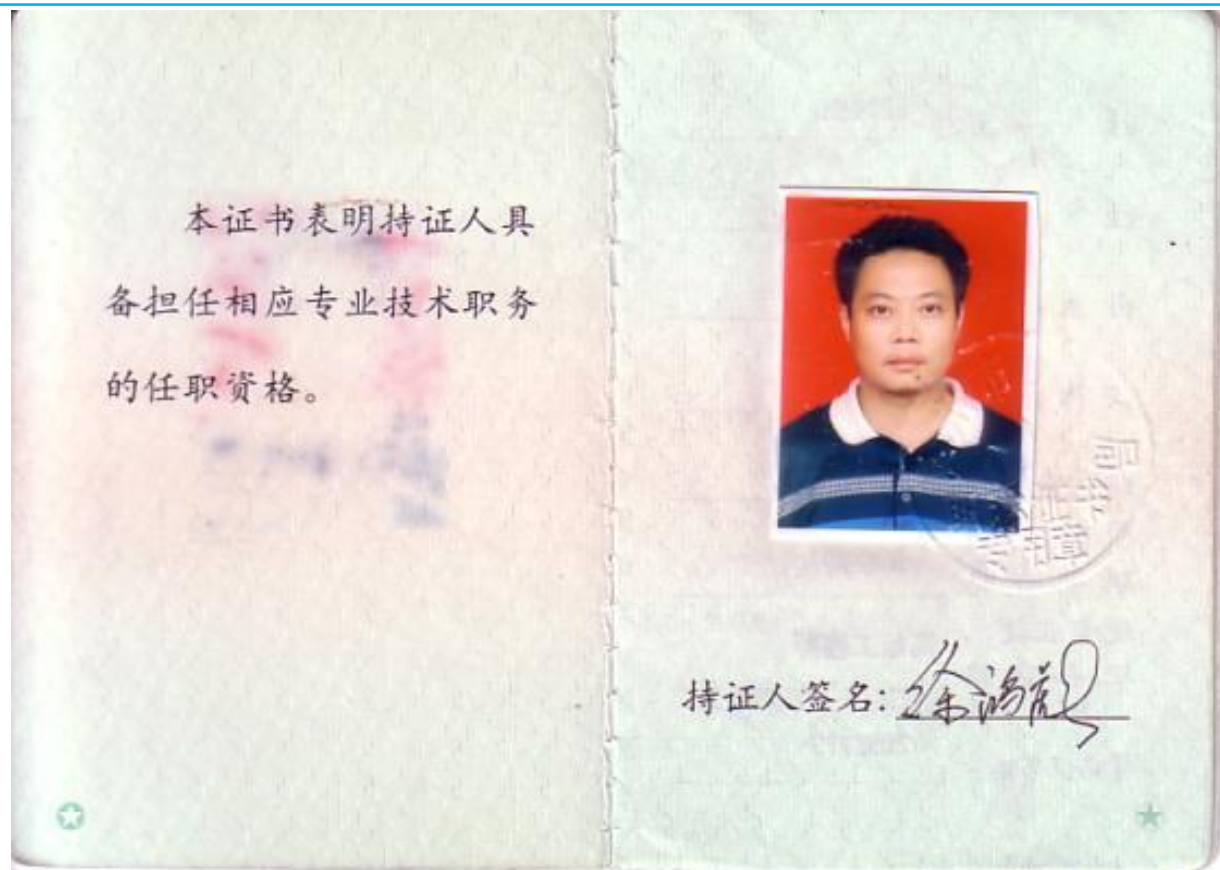 本证书表明持证人具
备担任相应专业技术职务
的任职资格。
局
专用章
持证人签名：徐鸿